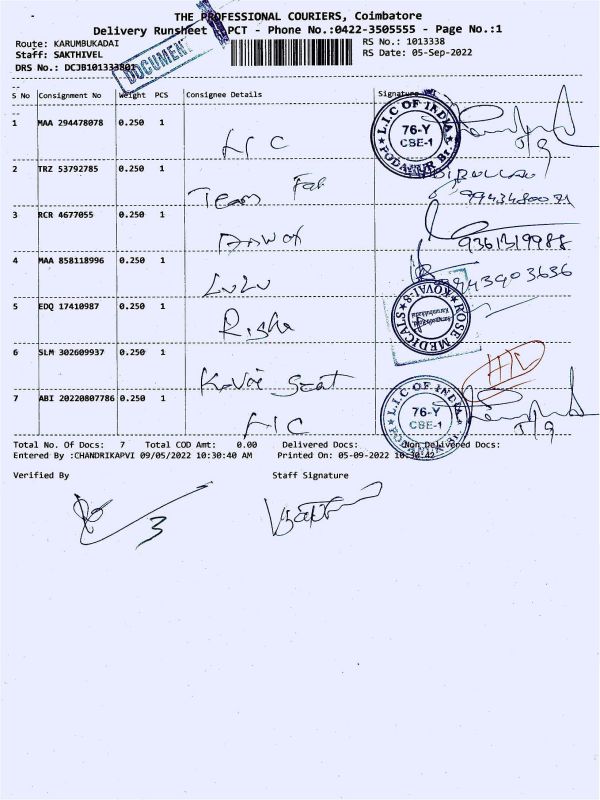 THE PROFESSIONAL COURIERS, Coimbatore
Delivery Runsheet PCT - Phone No.:0422-3505555 - Page No.:1
Route: KARUMBUKADAI
RS No.: 1013338
Staff: SAKTHIVEL
RS Date: 05-Sep-2022
DRS No.: DCJB101333801
DOCUMENT
S No Consignment No Weight PCS Consignee Details Signature
1 MAA 294478078 0.250 1 LIC
L.I.C OF INDIA 76-Y CBE-1 PODANUR Br. 5/9
2 TRZ 53792785 0.250 1 Team
3 RCR 4677055 0.250 1 Anwar
9361319988
4 MAA 858118996 0.250 1 LuLu
5 EDQ 17410987 0.250 1
ROSE MEDICALS KOVAI-8
6 SLM 302609937 0.250 1 Kovai Seat
7 ABI 20220807786 0.250 1 LIC
L.I.C OF INDIA 76-Y CBE-1 PODANUR Br. 5/9
Total No. Of Docs: 7 Total COD Amt: 0.00 Delivered Docs: Non Delivered Docs:
Entered By :CHANDRIKAPVI 09/05/2022 10:30:40 AM Printed On: 05-09-2022 10:30:42
Verified By Staff Signature